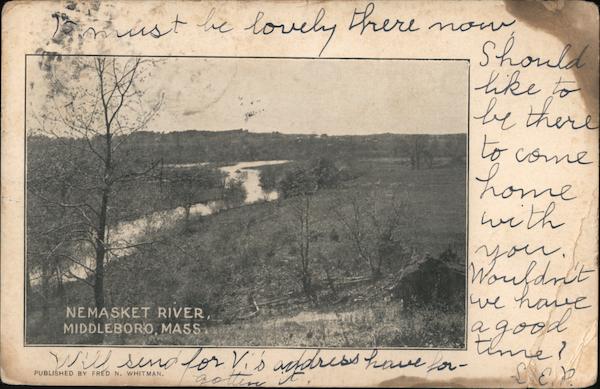 It must be lovely there now.
Should
like to
be there
to come
home
with
you.
Wouldn't
we have
a good
time?
NEMASKET RIVER,
MIDDLEBORO, MASS.
Will send for V.'s address have for-
gotten it.
PUBLISHED BY FRED N. WHITMAN.